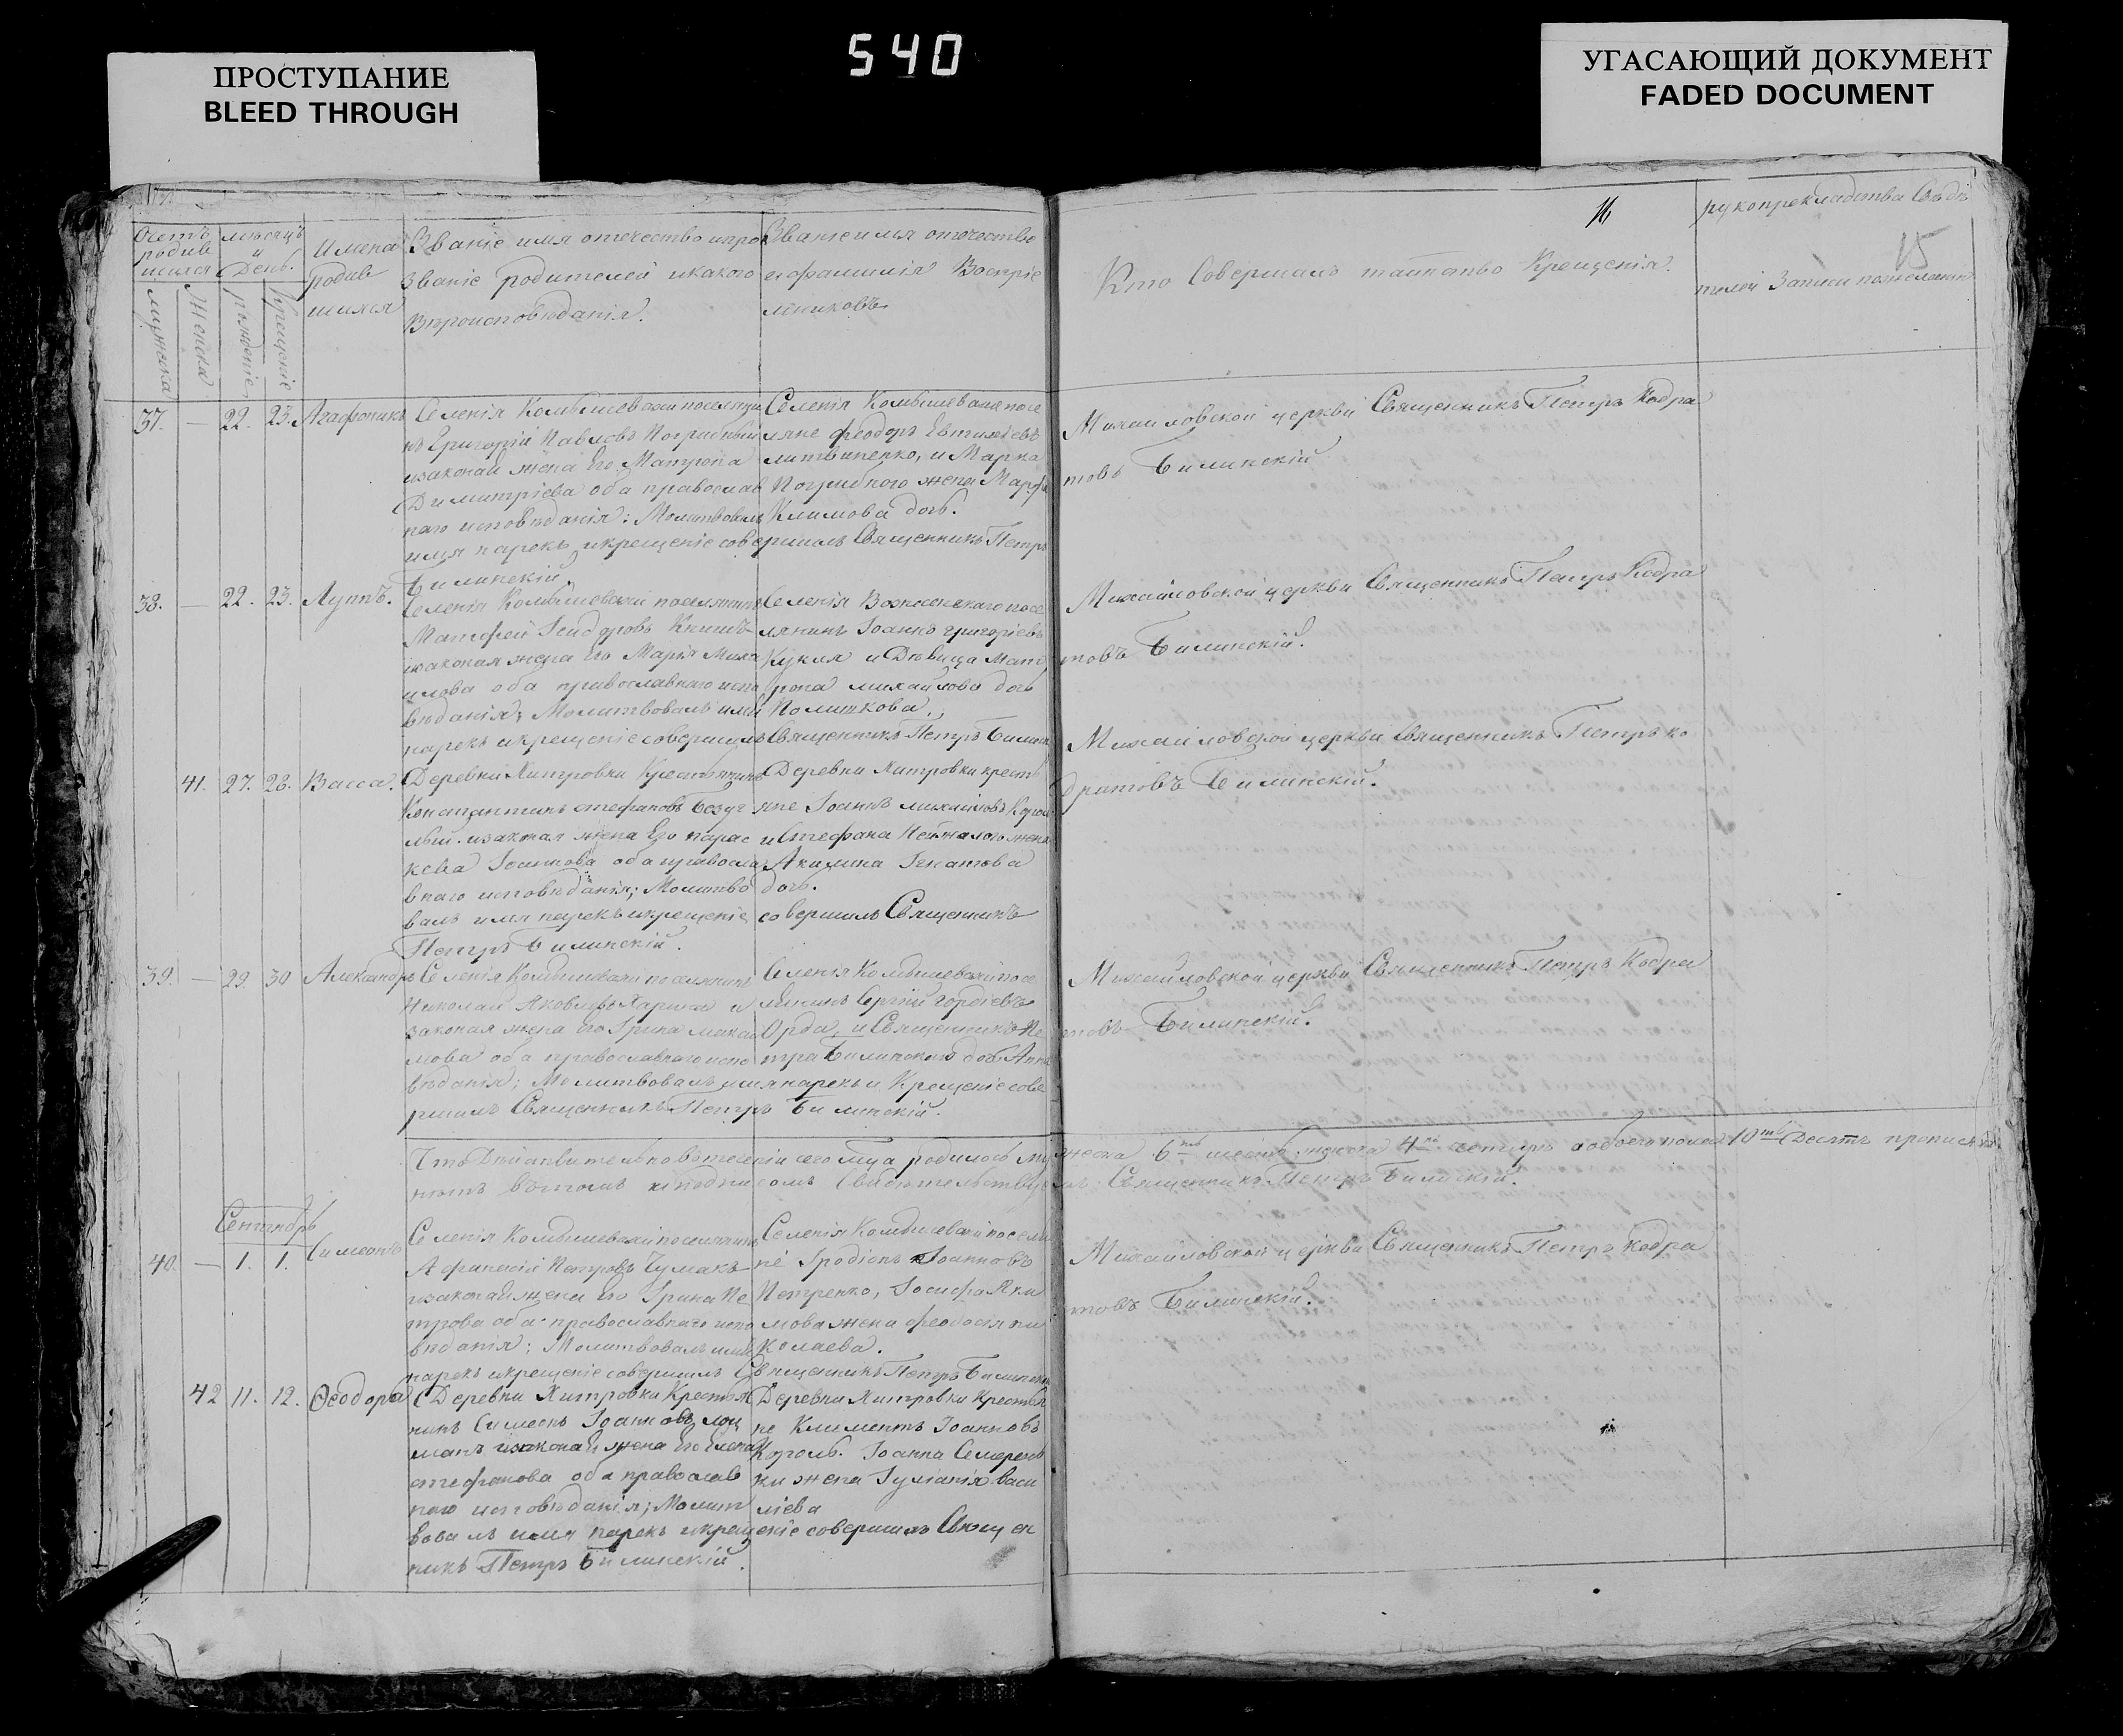 540
ПРОСТУПАНИЕ
BLEED THROUGH
УГАСАЮЩИЙ ДОКУМЕНТ
FADED DOCUMENT
Счетъ родив шихся
мужеска
Женска
мѣсяцъ и День.
рожденіе
Крещеніе
Имена родив шихся
Званіе имя отечество и про
званіе родителей и какого
Вѣроисповѣданія.
Званіе имя отечество
и фамилія Воспріе
мниковъ
16
Кто Совершалъ таинство Крещенія.
рукоприкладства Свѣдѣ
15
телей Записи по желанію
37. — 22. 23. Агафоникъ
Селенія Комышевахи поселяни
нъ Григорій Павловъ Погрибный
изаконая жена Его Матрона
Димитріева оба православ
наго исповѣданія: Молитвовалъ
имя нарекъ и крещеніе совершилъ Священникъ Петръ
Билинскій.
Селенія Комышевахи посе
ляне Феодоръ Евтихіевъ
литвиненко, и Марка
Погрибного жена Марфа
Климова дочь.
Михайловской церкви Священникъ Петръ Кодра
товъ Билинскій
38. — 22. 23. Луппъ.
Селенія Комышевахи поселянинъ
Матфей Исидоровъ Книшъ
изаконая жена Его Марія Миха
илова оба православнаго испо
вѣданія; Молитвовалъ имя
нарекъ и крещеніе совершилъ Священникъ Петръ Билин
Селенія Вознесенскаго посе
лянинъ Іоаннъ григоріевъ
Кукля и Дѣвица Мат
рона михайлова дочь
Михайловской церкви Священникъ Петръ Кодра
товъ Билинскій.
41. 27. 28. Васса.
Деревни Хитровки Крестьянинъ
Константинъ стефановъ
изаконая жена Его парас
кева оба правосла
внаго исповѣданія; Молитво
валъ имя нарекъ и крещеніе совершилъ Священникъ
Петръ Билинскій.
Деревни Хитровки кресть
яне Іоаннъ михайловъ
и Стефана жена
Акилина Игнатова
дочь.
Михайловской церкви Священникъ Петръ ко
дратовъ Билинскій.
39. — 29. 30 Александръ
Селенія Комышевахи поселянинъ
Николай Яковлевъ и
законая жена его Ірина
оба православнаго испо
вѣданія; Молитвовалъ имя нарекъ и Крещеніе сове
ршилъ Священникъ Петръ Билинскій.
Селенія Комышевахи посе
лянинъ Сергій Гордіевъ
Орда, и Священника Пе
тра Билинскаго дочь Анна
Михайловской церкви Священникъ Петръ Кодра
товъ Билинскій.
Что Дѣйствительно въ теченіи сего мца родилось мужеска 6ть шесть женска 4ре четыре а обоего пола 10ть Десять
въ томъ и подписомъ Свидѣтельствуемъ Священникъ Петръ Билинскій.
Сентябрь
40. — 1. 1. Симеонъ
Селенія Комышевахи поселянинъ
Афанасій Петровъ Чумакъ
изаконая жена Его Ірина Пе
трова оба православнаго испо
вѣданія; Молитвовалъ имя
нарекъ и крещеніе совершилъ Священникъ Петръ Билинскій
Селенія Комышевахи поселя
не Іродіонъ Іоанновъ
Петренко, Іосифа Яки
мова жена феодосія ни
колаева.
Михайловской церкви Священникъ Петръ Кодра
товъ Билинскій.
42 11. 12. Ѳеодора
Деревни Хитровки Крестья
нинъ Симеонъ Іоанновъ
изаконая жена Его Елена
стефанова оба православ
наго исповѣданія; Молит
вовалъ имя нарекъ и крещеніе совершилъ Священ
никъ Петръ Билинскій.
Деревни Хитровки Крестья
не Климентъ Іоанновъ
Король. Іоанна Семерень
ки жена Іуліанія васи
ліева